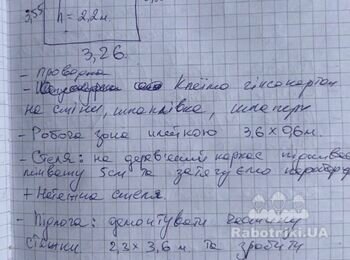 3,55
h = 2,2м.
3,26.
- Проводка
- Клеїмо гіпсокартон
на стіни, шпаклівка, шпалери
- Робоча зона плиткою 3,6 х 0,6м.
- Стеля: на дерев'яний каркас
5см та затягуємо
+ Натяжна стеля.
- Підлога: демонтувати частину
стяжки 2,3 х 3,6 м. та зробити
Rabotniki.UA